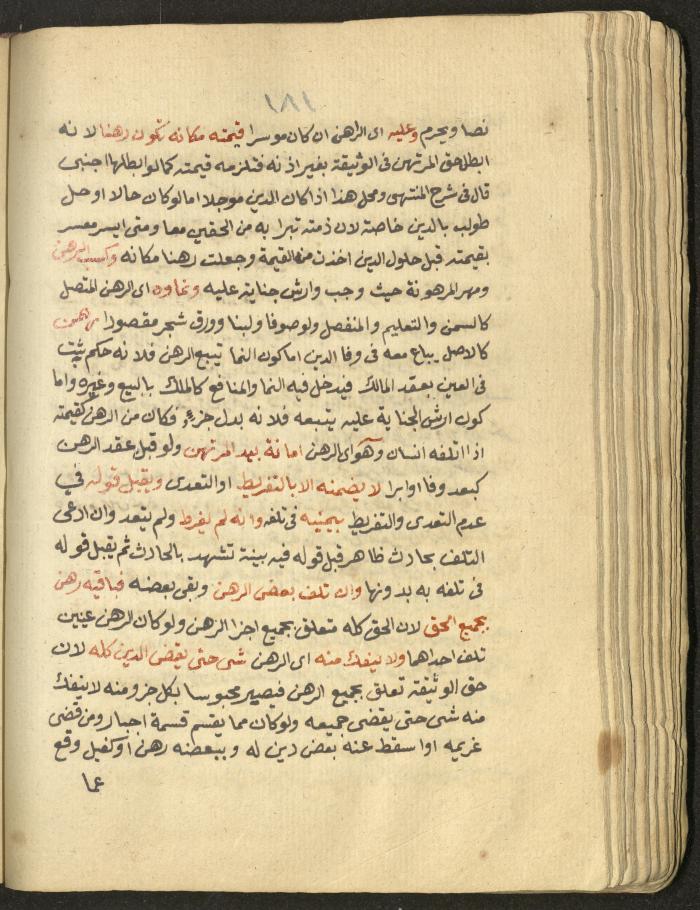 ١٨١
نصا ويحرم وعليه اى الراهن ان كان موسرا قيمته مكانه تكون رهنا لانه
ابطل حق المرتهن فى الوثيقة بغير اذنه فتلزمه قيمته كما لو ابطلها اجنبى
قال فى شرح المنتهى ومحل هذا اذا كان الدين موجلا اما لو كان حالا او حل
طولب بالدين خاصة لان ذمته تبرا به من الحقين معا ومتى ايسر معسر
بقيمته قبل حلول الدين اخذت منه القيمة وجعلت رهنا مكانه وكسب الرهن
ومهر المرهونة حيث وجب وارش جناية عليه ونماوه اى الرهن المتصل
كالسمن والتعليم والمنفصل ولو صوفا ولبنا وورق شجر مقصودا رهن
كالاصل يباع معه فى وفا الدين اما كون النما تيبع الرهن فلانه حكم يثبت
فى العين بعقد المالك فيدخل فيه النما والمنافع كالملك بالبيع وغيره واما
كون ارش الجناية عليه يتبعه فلانه بدل جزءٍ فكان من الرهن كقيمته
اذا اتلفه انسان وهو اى الرهن امانة بيد المرتهن ولو قبل عقد الرهن
كبعد وفا او ابرا لا يضمنه الا بالتفريط او التعدى ويقبل قوله في
عدم التعدى والتفريط بيمينه فى تلفه وانه لم يفرط ولم يتعد وان ادعى
التلف بحادث ظاهر قبل قوله فيه ببينة تشهد بالحادث ثم يقبل قوله
فى تلفه به بدونها وان تلف بعض الرهن وبقى بعضه فباقيه رهن
بجميع الحق لان الحق كله متعلق بجميع اجزا الرهن ولو كان الرهن عينين
تلف احداهما ولا ينفك منه اى الرهن شى حتى يقضى الدين كله لان
حق الوثيقة تعلق بجميع الرهن فيصير محبوسا بكل جزو منه لا ينفك
منه شى حتى يقضى جميعه ولو كان مما يقسم قسمة اجبار ومن قضى
غريمه او اسقط عنه بعض دين له وببعضه رهن او كفيل وقع
عما